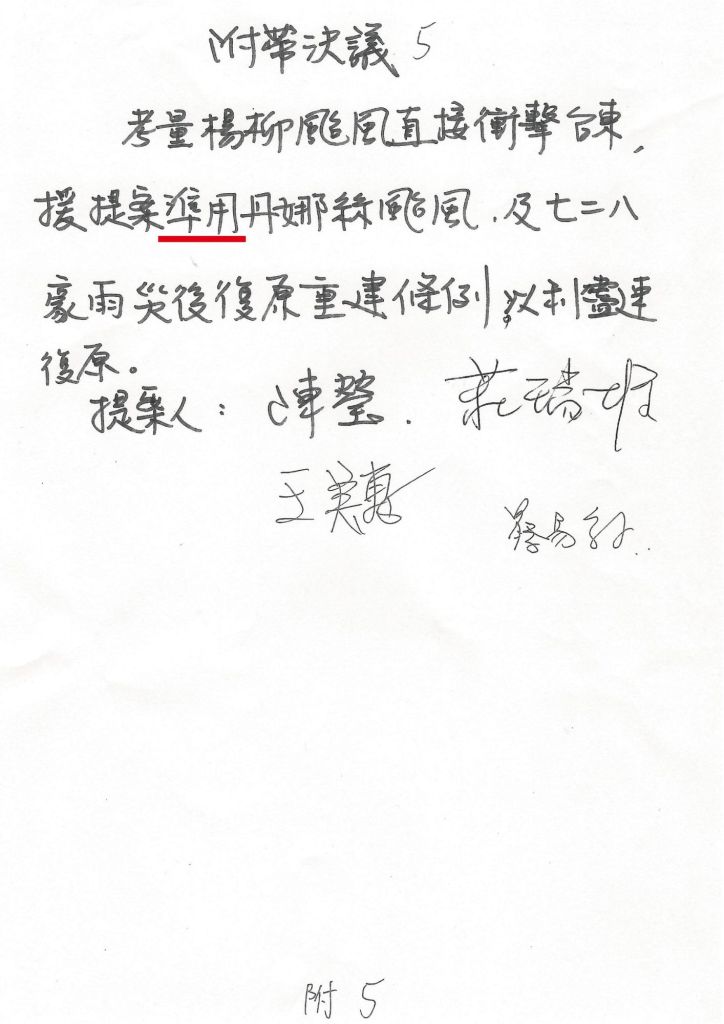 附帶決議 5
考量楊柳颱風直接衝擊台東,
援提案準用丹娜絲颱風、及七二八
豪雨災後復原重建條例,以利儘速
復原。
提案人: 陳瑩. 莊瑞雄
王美惠
蔡易餘
附 5